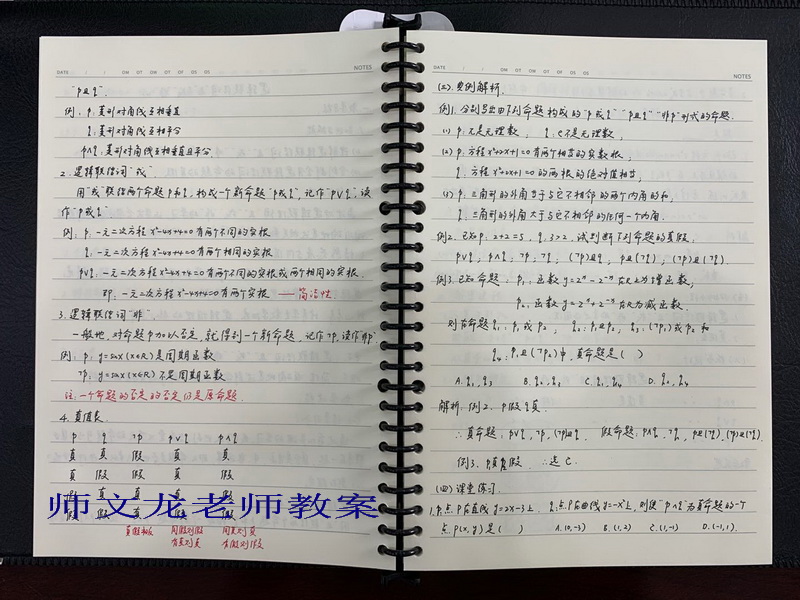 DATE / / OM OT OF OS OS NOTES
"p且q".
例: p: 菱形对角线互相垂直
q: 菱形对角线互相平分
p∧q: 菱形对角线互相垂直且平分.
2. 逻辑联结词"或"
用"或"联结两个命题p和q, 构成一个新命题"p或q", 记作"p∨q", 读
作"p或q"
例: p: 一元二次方程x²-4x+4=0有两个不同的实根
q: 一元二次方程x²-4x+4=0有两个相同的实根
p∨q: 一元二次方程x²-4x+4=0有两个不同的实根或两个相同的实根.
即: 一元二次方程x²-4x+4=0有两个实根 ——简洁性
3. 逻辑联结词"非"
一般地, 对命题p加以否定, 就得到一个新命题, 记作¬p, 读作"非p"
例: p: y=sinx(x∈R)是周期函数
¬p: y=sinx(x∈R)不是周期函数
注: 一个命题的否定的否定仍是原命题.
4. 真值表
p q ¬p p∨q p∧q
真 真 假 真 真
真 假 假 真 假
师文龙老师教案
真假相反 同假为假 同真为真
有真为真 有假为假
DATE / / OM OT OF OS OS NOTES
(三). 典例解析.
例1. 分别写出由下列命题构成的"p或q" "p且q" "非p"形式的命题.
(1) p: π是无理数, q: e不是无理数;
(2) p: 方程x²+2x+1=0有两个相等的实数根,
q: 方程x²+2x+1=0的两根的绝对值相等;
p: 三角形的外角等于与它不相邻的两个内角的和,
q: 三角形的外角大于与它不相邻的任何一个内角.
例2. 已知p: 2+2=5, q: 3>2, 试判断下列命题的真假.
p∨q; p∧q; ¬p; ¬q; (¬p)且q; p且(¬q); (¬p)且(¬q).
例3. 已知命题: p₁: 函数y=2ˣ-2⁻ˣ在R上为增函数,
p₂: 函数y=2ˣ+2⁻ˣ在R为减函数.
则在命题q₁: p₁或p₂, q₂: p₁且p₂, q₃: (¬p₁)或p₂和
q₄: p₁且(¬p₂)中, 真命题是( )
A. q₁, q₃ B. q₂, q₃ C. q₁, q₄ D. q₂, q₄
解析: 例2. p假q真
∴真命题: p∨q, ¬p, (¬p)且q. 假命题: p∧q, ¬q, p且(¬q), (¬p)且(¬q).
例3. ∴选C.
(四) 课堂练习.
1. p: 点P在直线y=2x-3上, q: 点P在曲线y=-x²上, 则使"p∧q"为真命题的一个
点P(x, y)是( ) A. (0, -3) B. (1, 2) C. (1, -1) D. (-1, 1).